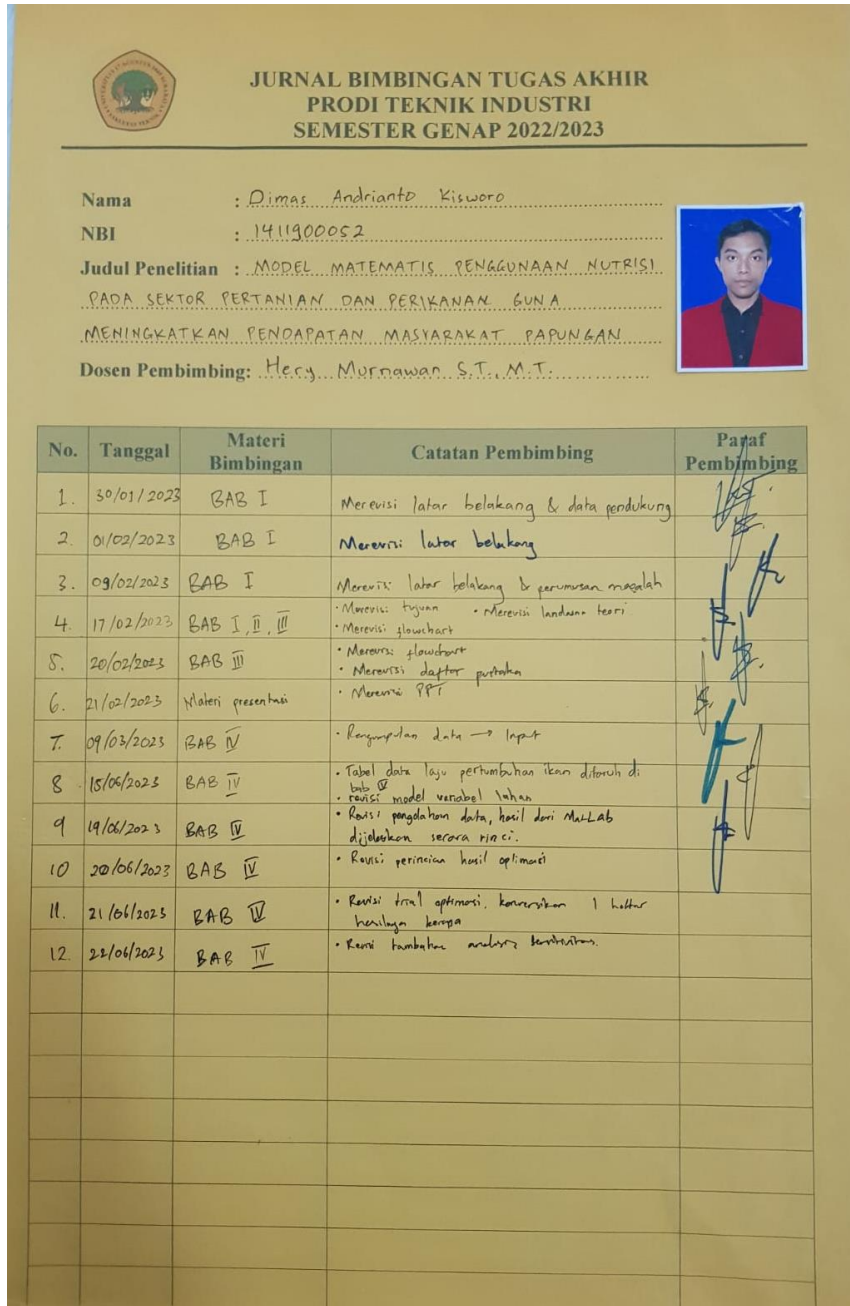 JURNAL BIMBINGAN TUGAS AKHIR
PRODI TEKNIK INDUSTRI
SEMESTER GENAP 2022/2023
Nama : Dimas Andrianto Kisworo
NBI : 1411900052
Judul Penelitian : MODEL MATEMATIS PENGGUNAAN NUTRISI
PADA SEKTOR PERTANIAN DAN PERIKANAN GUNA
MENINGKATKAN PENDAPATAN MASYARAKAT PAPUNGAN
Dosen Pembimbing: Hery Murnawan S.T., M.T.
No. Tanggal Materi Bimbingan Catatan Pembimbing Paraf Pembimbing
1. 30/01/2023 BAB I Merevisi latar belakang & data pendukung
2. 01/02/2023 BAB I Merevisi latar belakang
3. 09/02/2023 BAB I Merevisi latar belakang & perumusan masalah
4. 17/02/2023 BAB I, II, III • Merevisi tujuan • Merevisi landasan teori
• Merevisi flowchart
5. 20/02/2023 BAB III • Merevisi flowchart
• Merevisi daftar pustaka
6. 21/02/2023 Materi presentasi • Merevisi PPT
7. 09/03/2023 BAB IV • Pengumpulan data → Input
8 15/06/2023 BAB IV • Tabel data laju pertumbuhan ikan ditaruh di
bab IV
• revisi model variabel lahan
9 19/06/2023 BAB IV • Revisi pengolahan data, hasil dari MatLab
dijelaskan secara rinci.
10 20/06/2023 BAB IV • Revisi perincian hasil optimasi
11. 21/06/2023 BAB IV • Revisi trial optimasi, konversikan 1 hektar
hasilnya berapa
12. 22/06/2023 BAB IV • Revisi tambahan analisis sensitivitas.